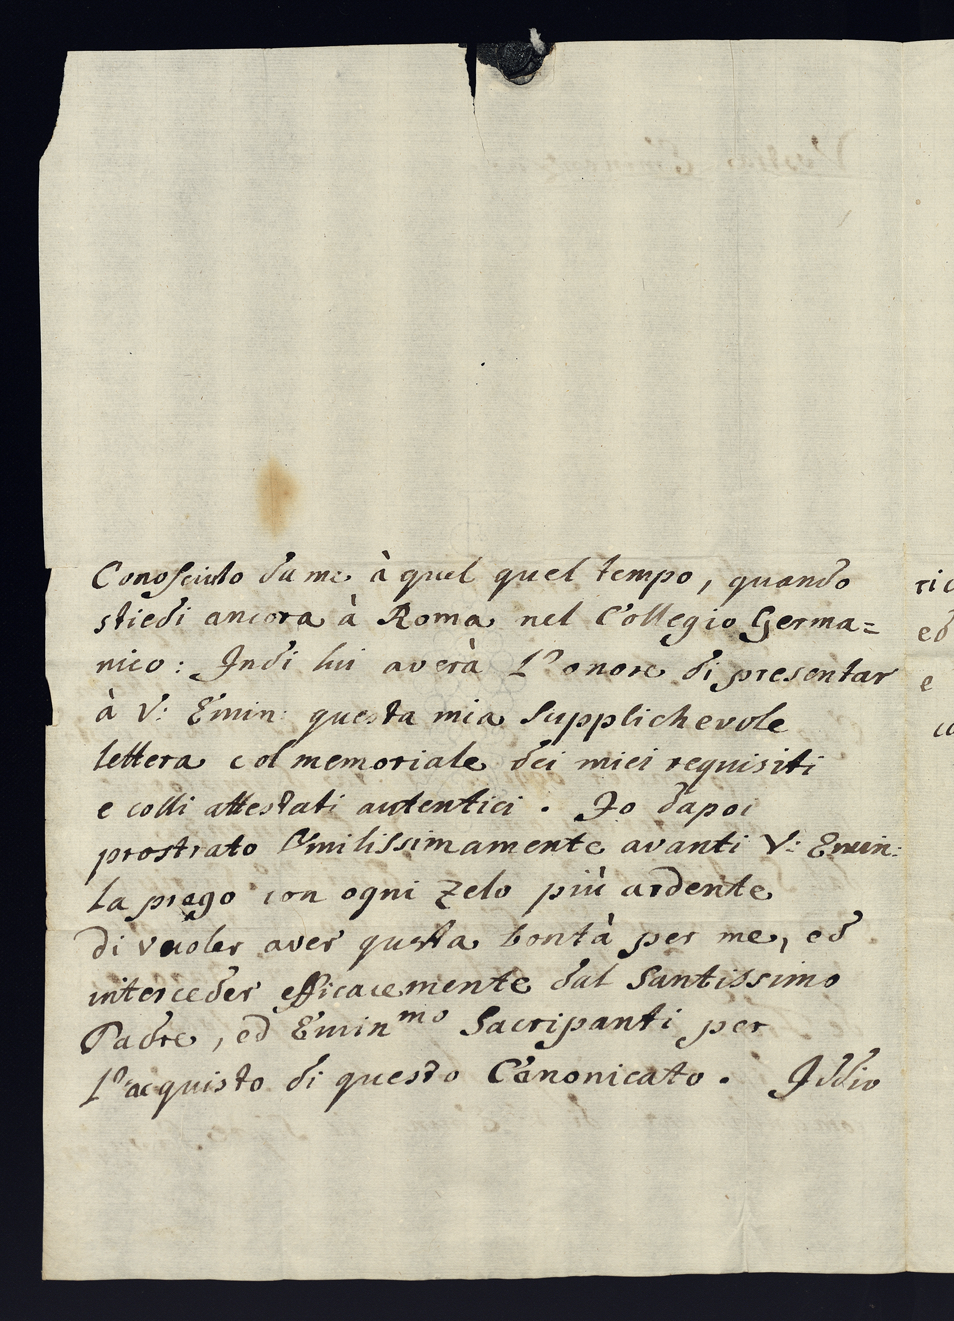 Conosciuto da me à quel quel tempo, quando
stiedi ancora à Roma nel Collegio Germa=
nico: Indi lui averà l'onore di presentar
à V: Emin: questa mia supplichevole
lettera col memoriale dei miei requisiti
e colli attestati autentici. Io dapoi
prostrato Umilissimamente avanti V: Emin:
la prego con ogni zelo più ardente
di vuoler aver questa bontà per me, ed
interceder efficacemente dal Santissimo
Padre, ed Emin^mo Sacripanti per
l'acquisto di questo Canonicato. Iddio